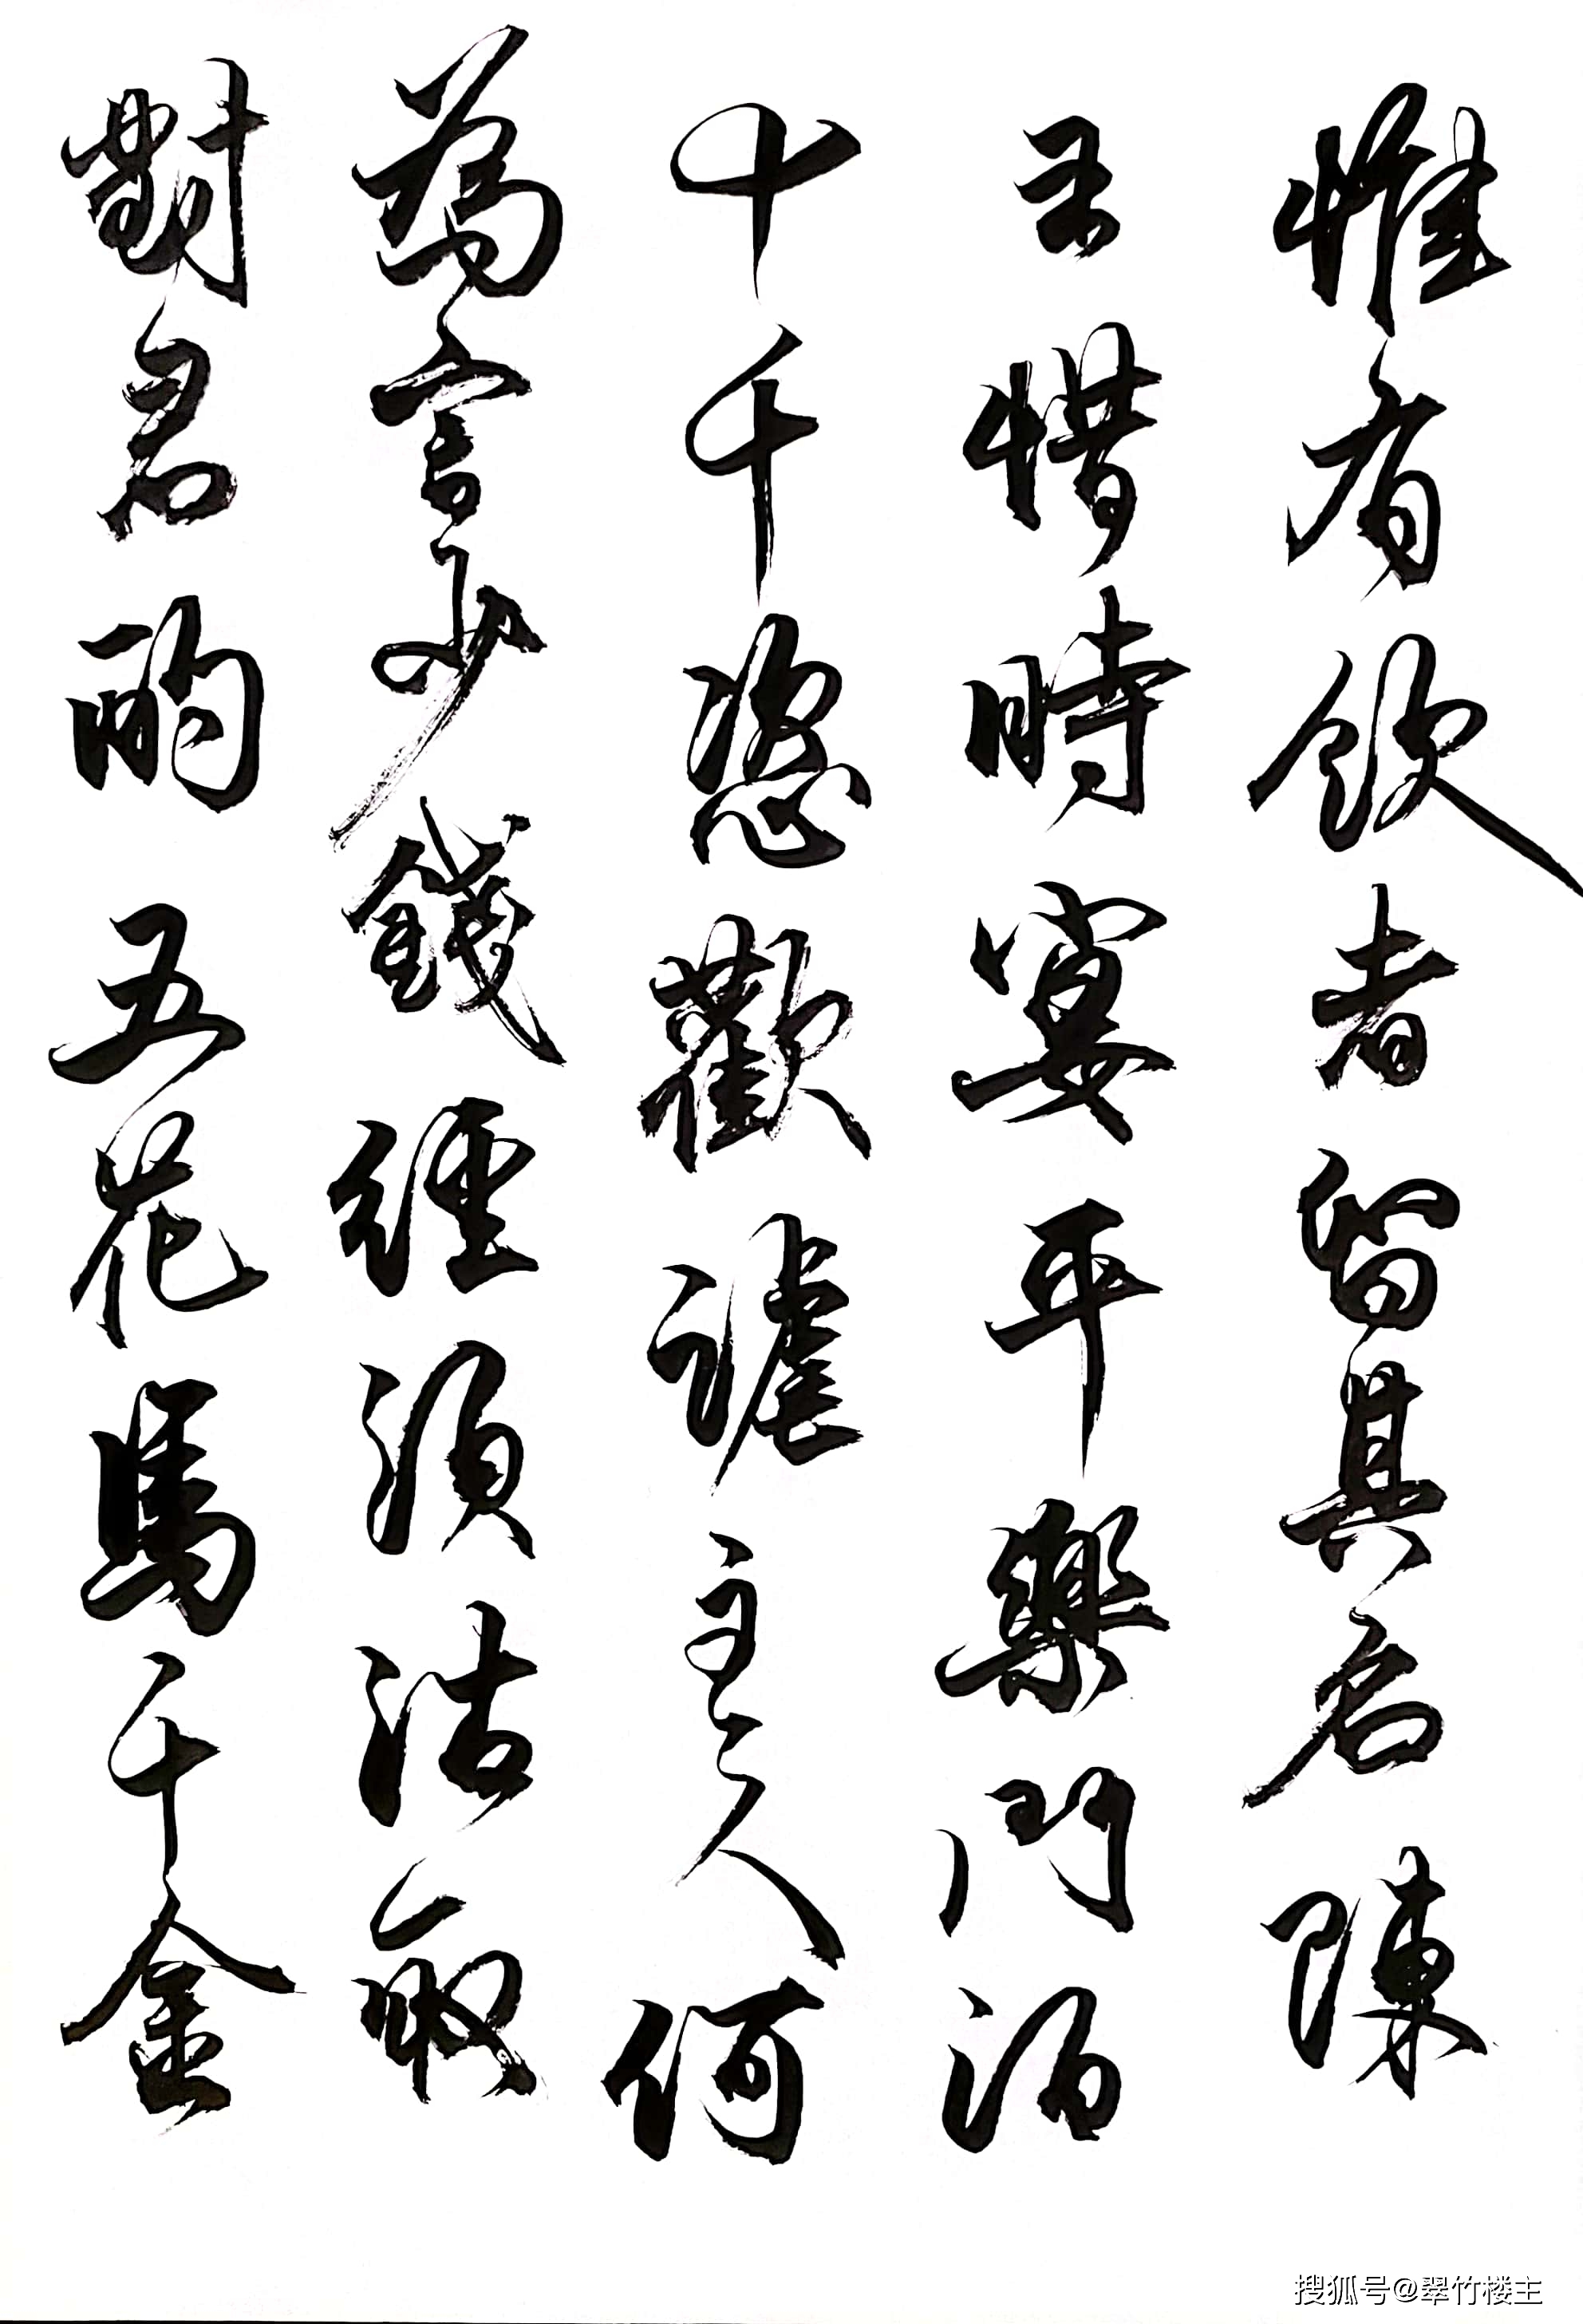 惟有飲者留其名陳
王惜時宴平樂門酒
十千恣歡謔主人何
為言少錢徑須沽取
對君酌五花馬千金
搜狐号@翠竹楼主